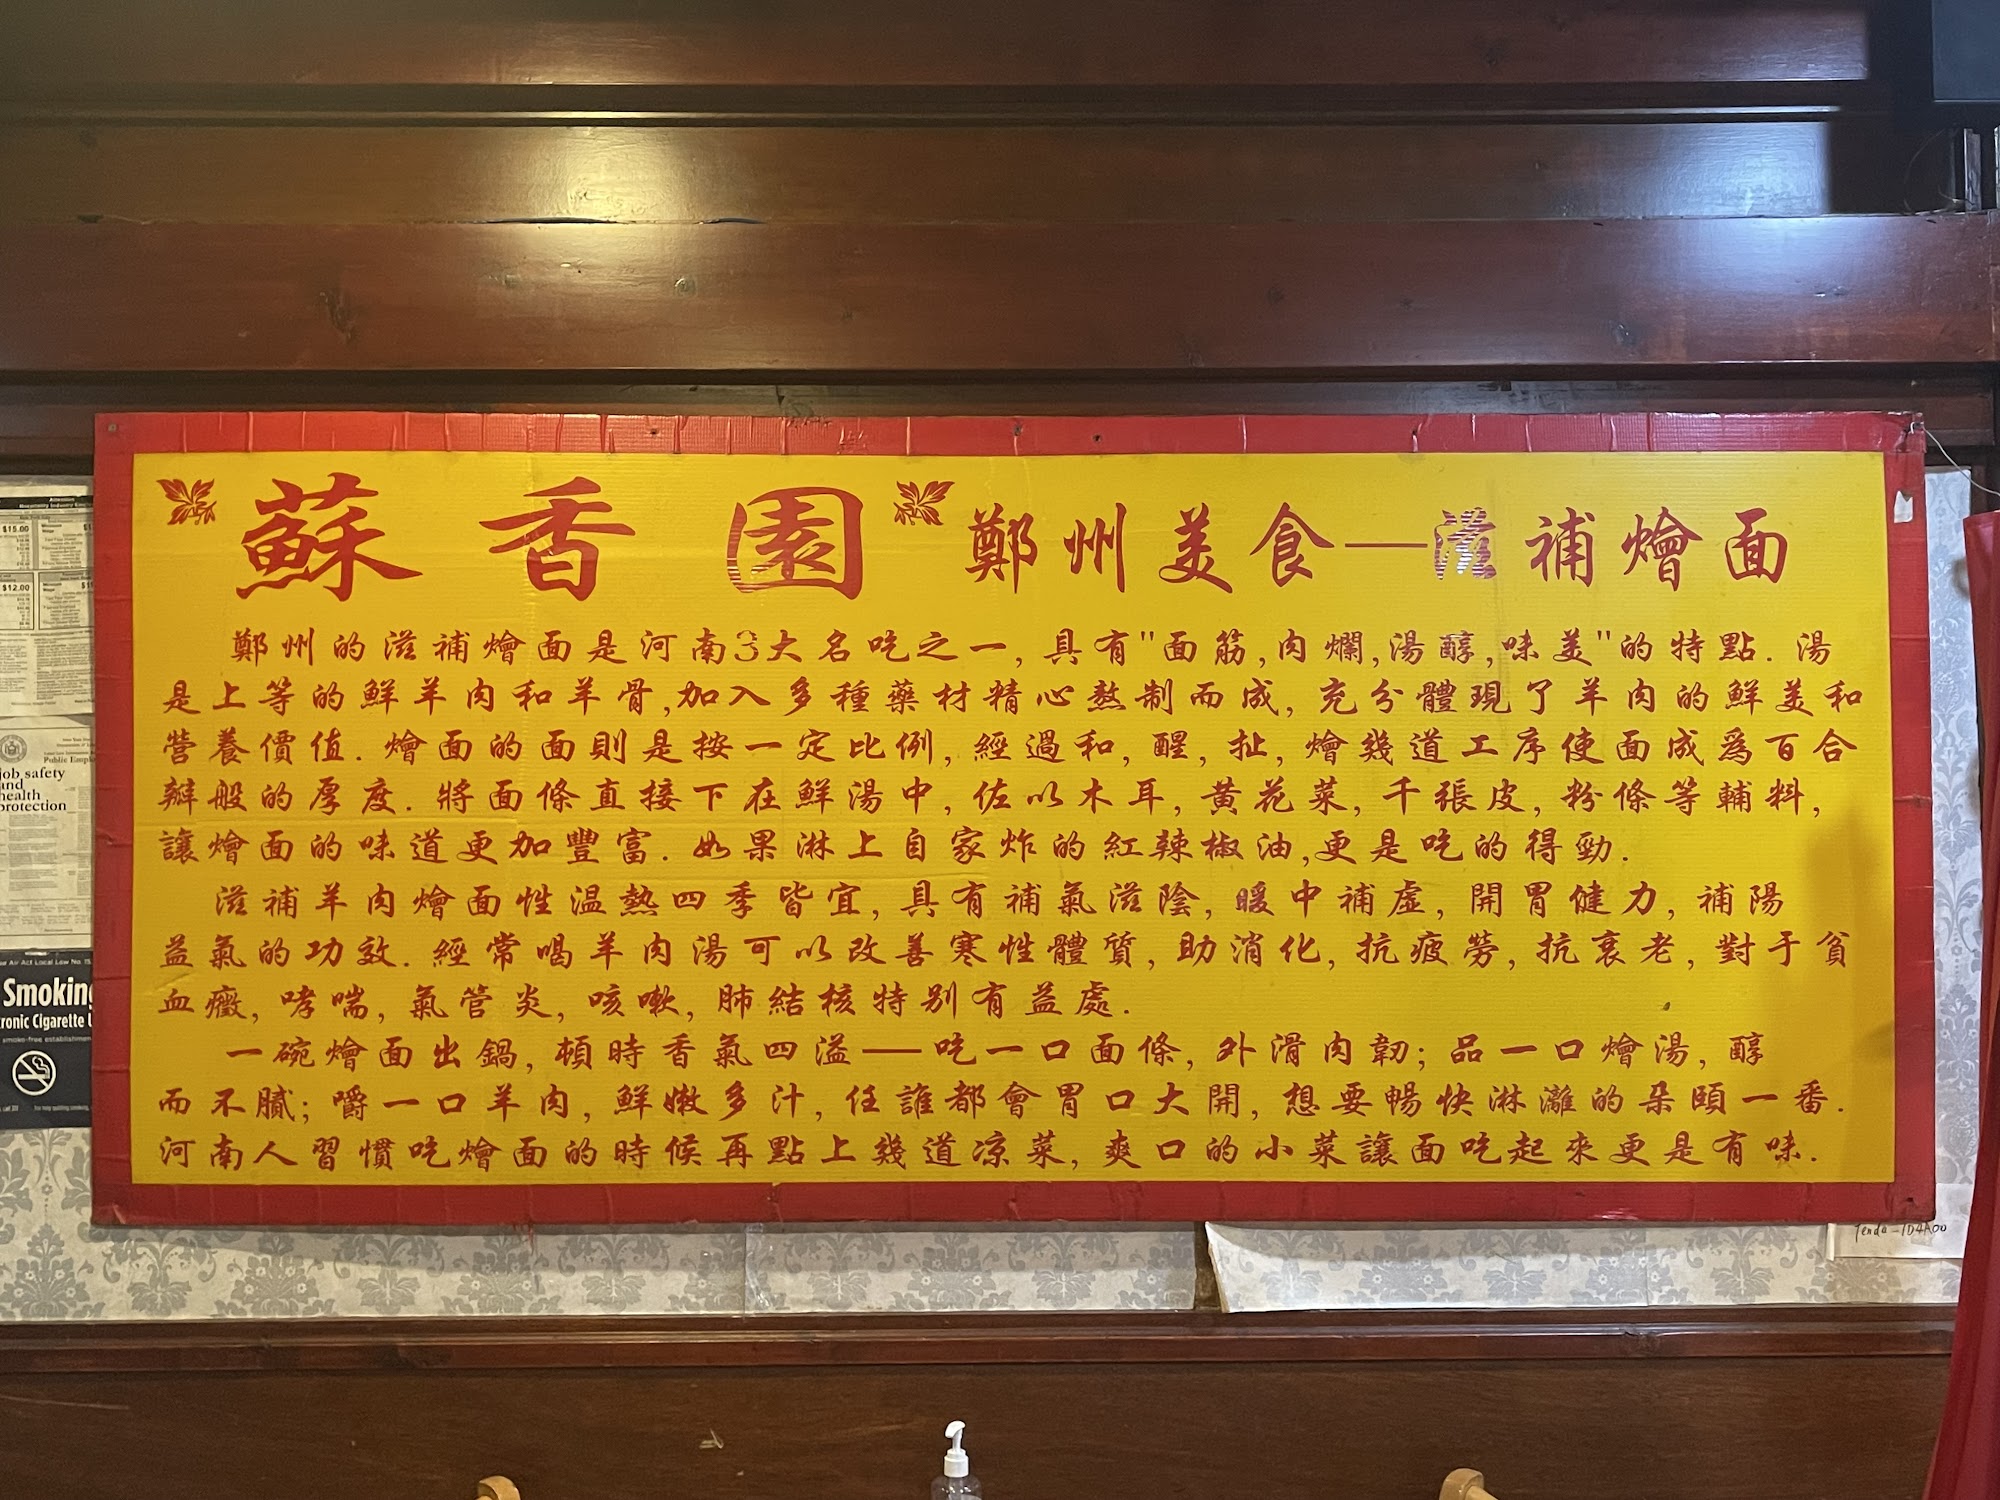 蘇香園 鄭州美食—滋補燴面
鄭州的滋補燴面是河南3大名吃之一, 具有"面筋,肉爛,湯醇,味美"的特點. 湯
是上等的鮮羊肉和羊骨,加入多種藥材精心熬制而成, 充分體現了羊肉的鮮美和
營養價值. 燴面的面則是按一定比例, 經過和, 醒, 扯, 燴幾道工序使面成爲百合
瓣般的厚度. 將面條直接下在鮮湯中, 佐以木耳, 黄花菜, 千張皮, 粉條等輔料,
讓燴面的味道更加豐富. 如果淋上自家炸的紅辣椒油,更是吃的得勁.
滋補羊肉燴面性温熱四季皆宜, 具有補氣滋陰, 暖中補虛, 開胃健力, 補陽
益氣的功效. 經常喝羊肉湯可以改善寒性體質, 助消化, 抗疲勞, 抗衰老, 對于貧
血癥, 哮喘, 氣管炎, 咳嗽, 肺結核特别有益處.
一碗燴面出鍋, 頓時香氣四溢——吃一口面條, 外滑肉韌; 品一口燴湯, 醇
而不膩; 嚼一口羊肉, 鮮嫩多汁, 任誰都會胃口大開, 想要暢快淋灕的朵頤一番.
河南人習慣吃燴面的時候再點上幾道凉菜, 爽口的小菜讓面吃起來更是有味.
$15.00
$12.00
Public Emplo
job safety
and
health
protection
Smoking
ronic Cigarette U
Tenda-1D4A00